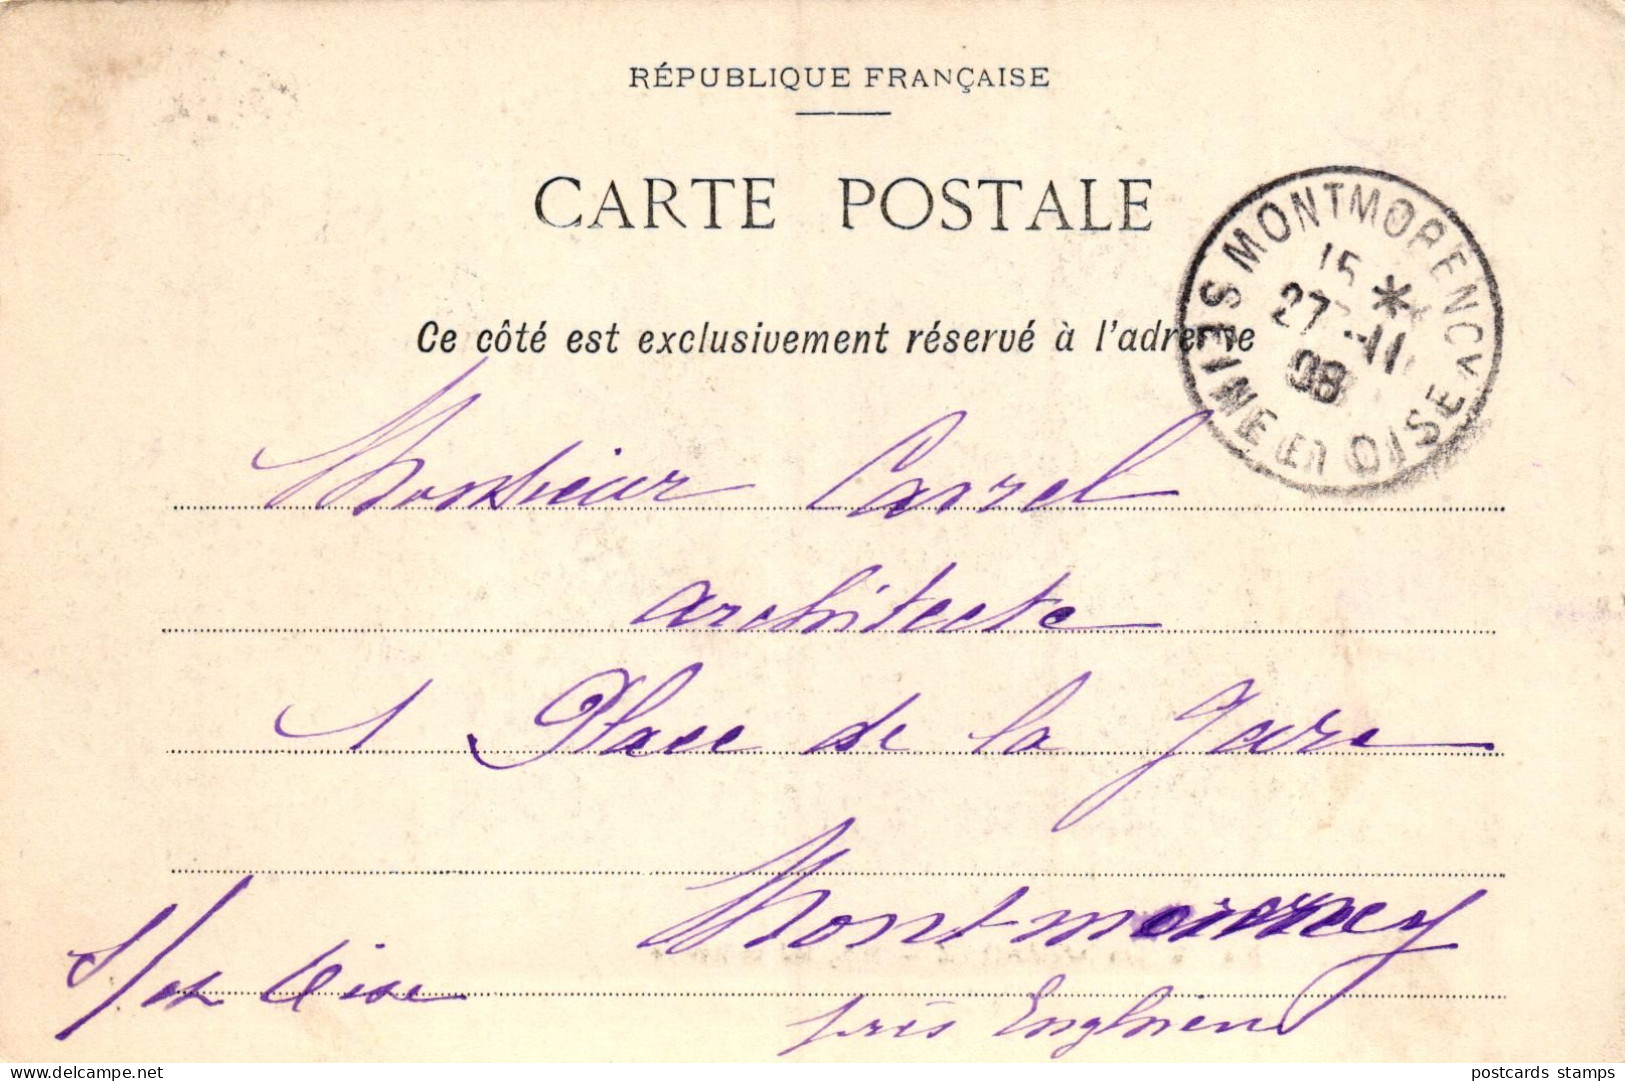 RÉPUBLIQUE FRANÇAISE
CARTE POSTALE
Ce côté est exclusivement réservé à l'adresse
MONTMORENCY
SEINE ET OISE
15 *
27 -11
08
Monsieur Carrel
architecte
1 Place de la Gare
Montmorency
S/et Oise
près Enghien
delcampe.net
postcards stamps